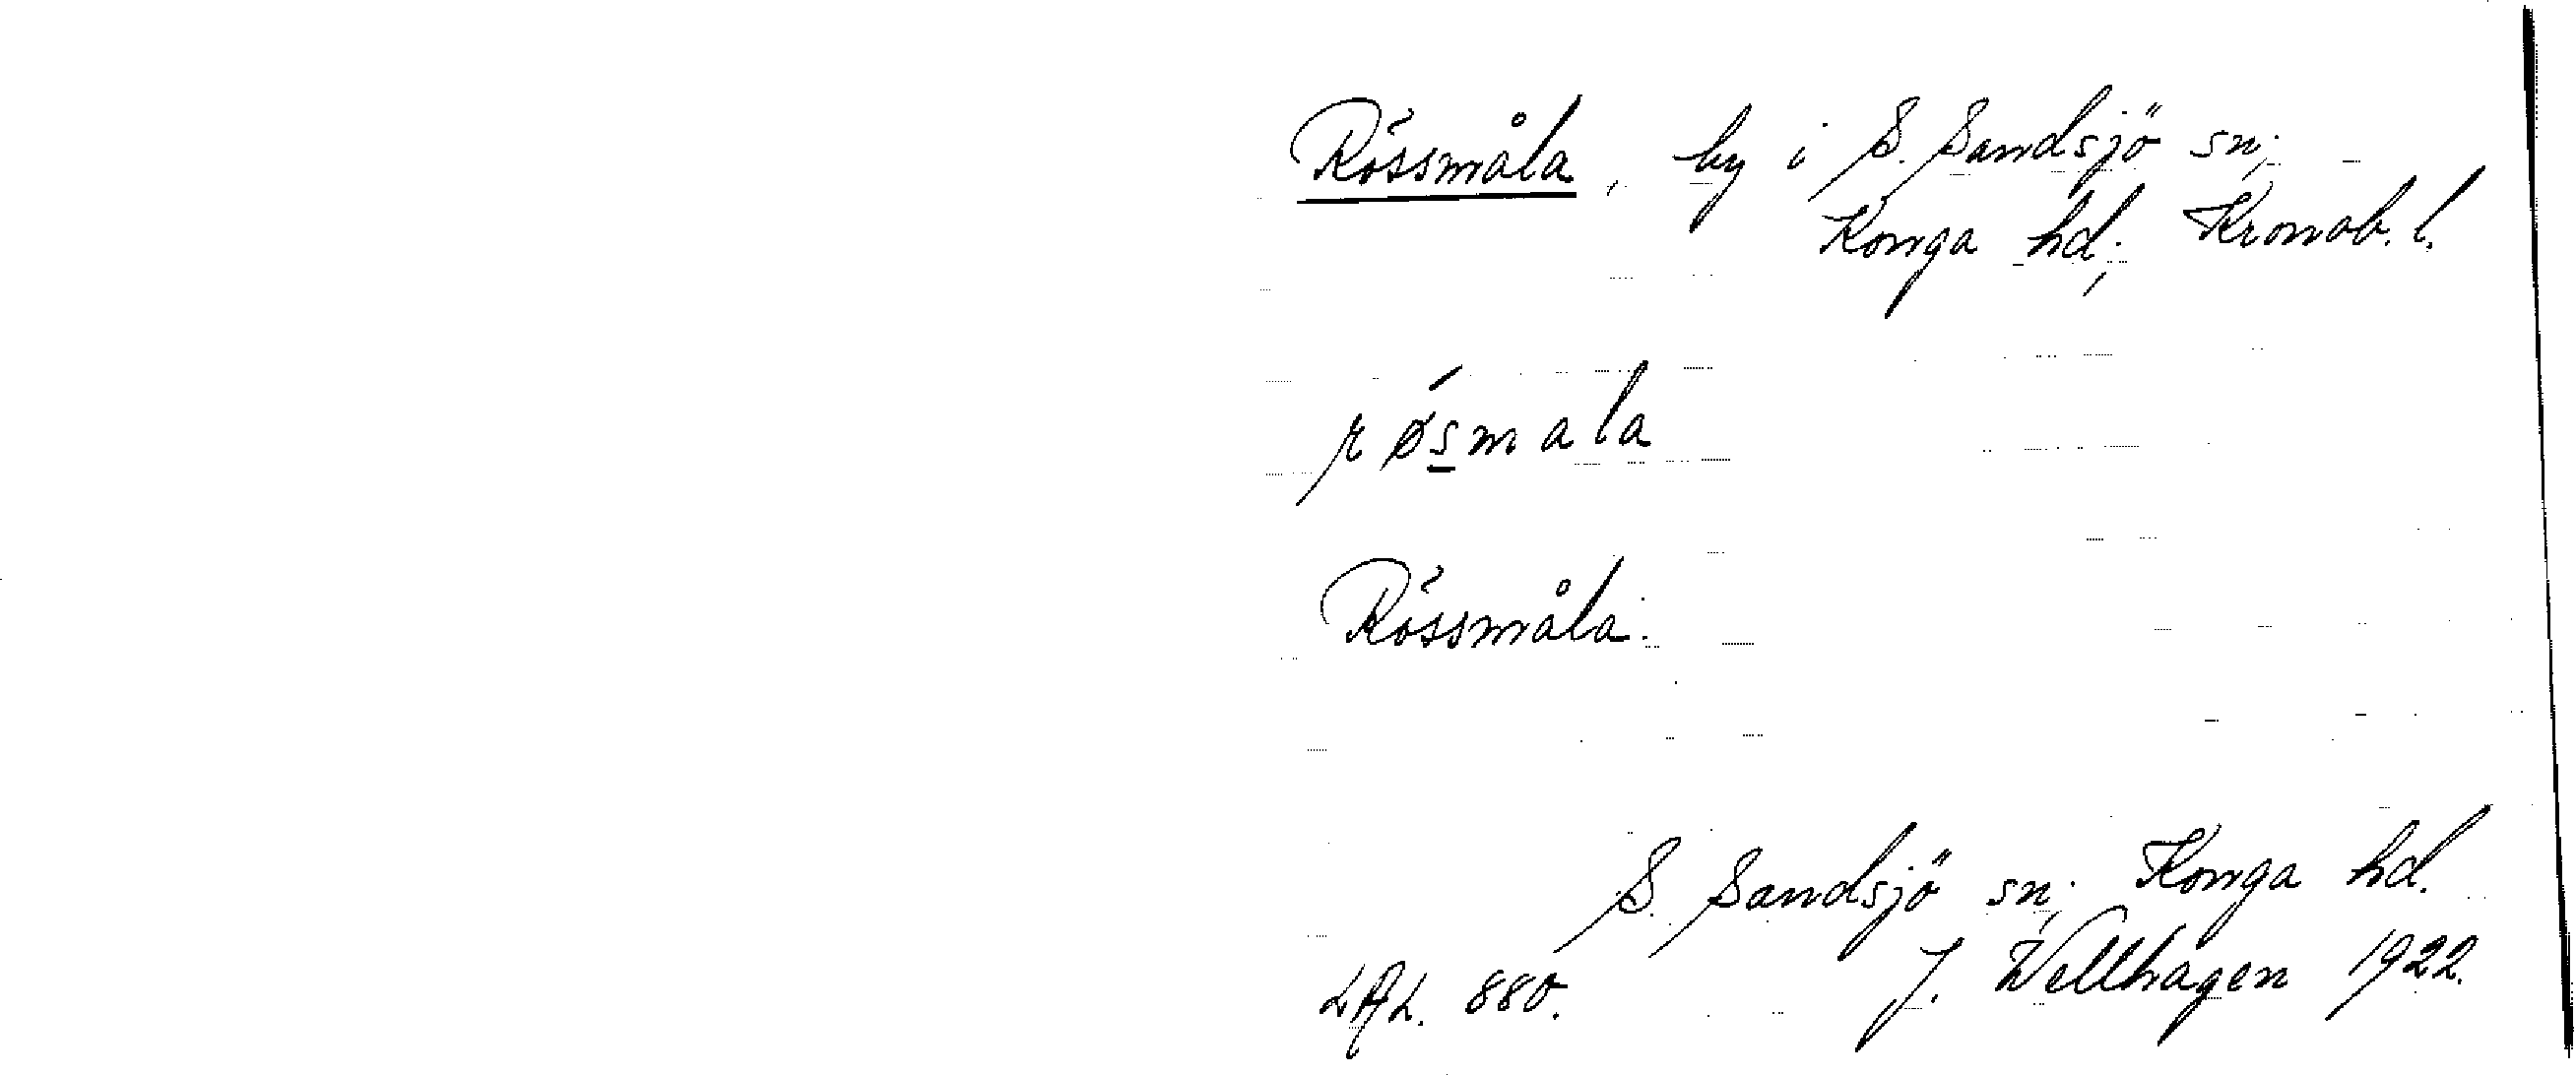 Rössmåla, by i S. Sandsjö sn;
Konga hd; Kronob. l.
røs̲mala
Rössmåla.
S. Sandsjö sn; Konga hd.
LAL. 880. J. Wellhagen 1922.